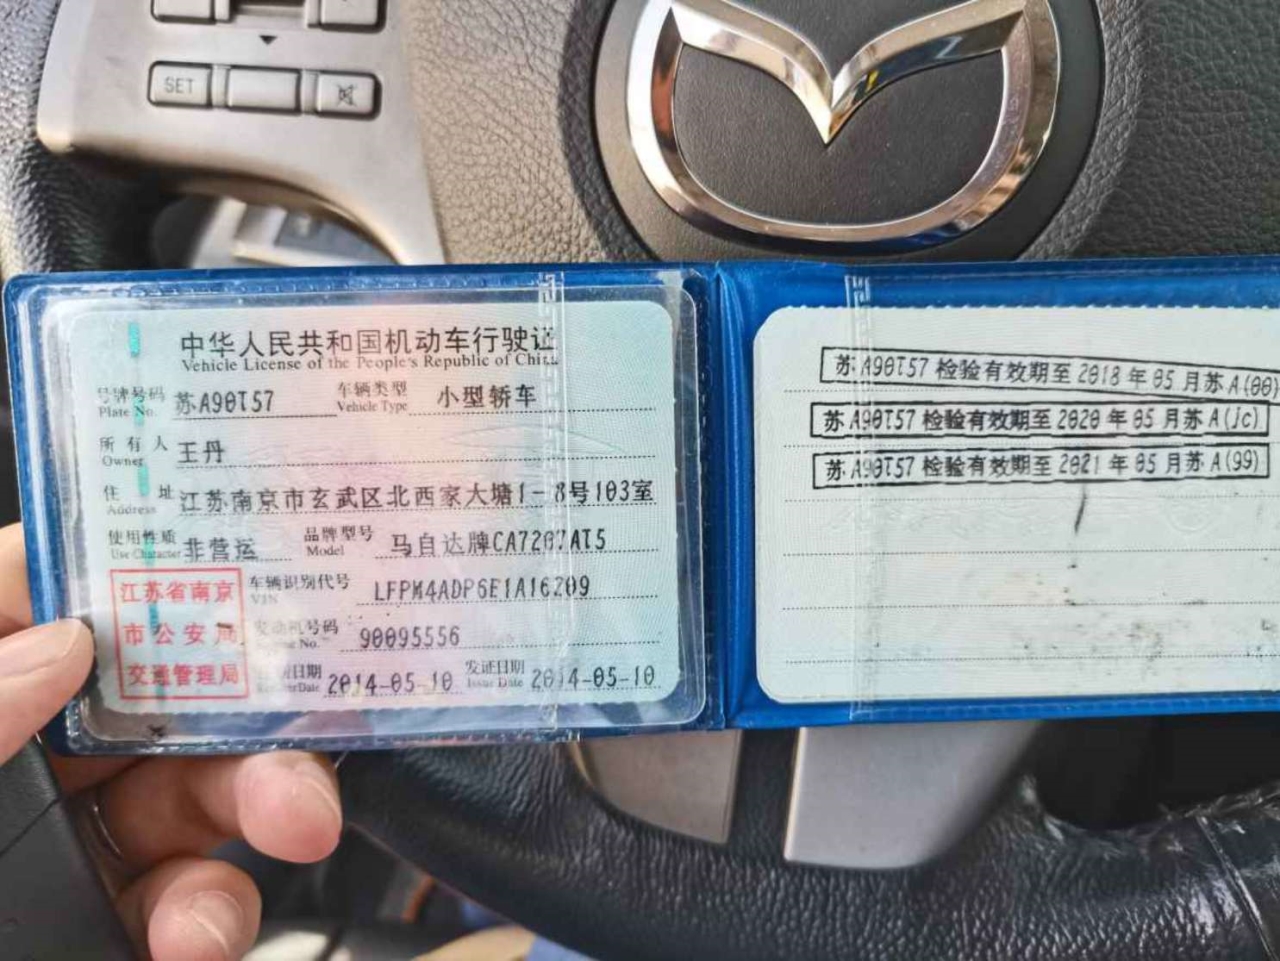 SET
中华人民共和国机动车行驶证
Vehicle License of the People's Republic of China
号牌号码 苏A90T57 车辆类型 小型轿车
Plate No. Vehicle Type
所有人 王丹
Owner
住址 江苏南京市玄武区北西家大塘1-8号103室
Address
使用性质 非营运 品牌型号 马自达牌CA7207AT5
Use Character Model
江苏省南京 车辆识别代号 LFPM4ADP6E1A16209
VIN
市公安局 发动机号码 90095556
No.
交通管理局 日期 2014-05-10 发证日期 2014-05-10
Date Issue Date
苏A90T57 检验有效期至 2018 年 05 月苏 A(00)
苏A90T57 检验有效期至 2020 年 05 月苏 A(jc)
苏A90T57 检验有效期至 2021 年 05 月苏 A(99)